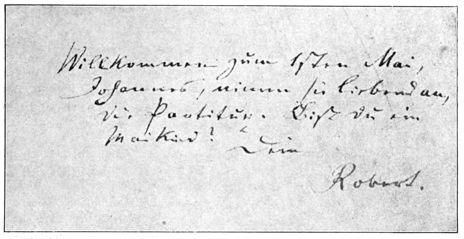 Willkommen zum 1sten Mai,
Johannes, nimm sie liebend an,
die Partitur. Bist du ein
Maikind? Dein
Robert.